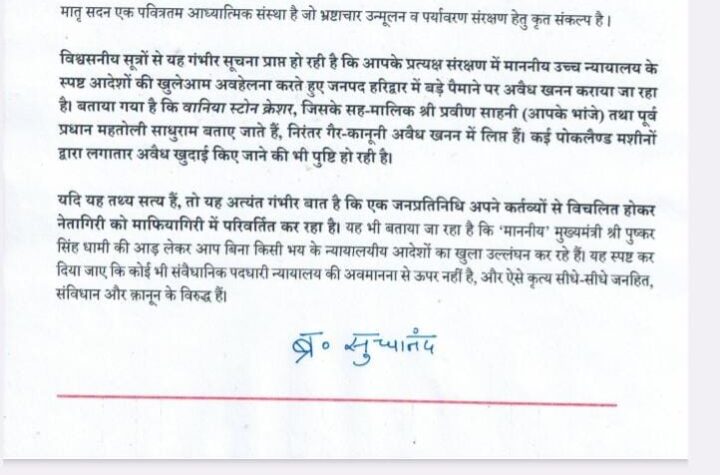 मातृ सदन एक पवित्रतम आध्यात्मिक संस्था है जो भ्रष्टाचार उन्मूलन व पर्यावरण संरक्षण हेतु कृत संकल्प है।
विश्वसनीय सूत्रों से यह गंभीर सूचना प्राप्त हो रही है कि आपके प्रत्यक्ष संरक्षण में माननीय उच्च न्यायालय के
स्पष्ट आदेशों की खुलेआम अवहेलना करते हुए जनपद हरिद्वार में बड़े पैमाने पर अवैध खनन कराया जा रहा
है। बताया गया है कि वानिया स्टोन क्रेशर, जिसके सह-मालिक श्री प्रवीण साहनी (आपके भांजे) तथा पूर्व
प्रधान महतोली साधुराम बताए जाते हैं, निरंतर गैर-कानूनी अवैध खनन में लिप्त हैं। कई पोकलैण्ड मशीनों
द्वारा लगातार अवैध खुदाई किए जाने की भी पुष्टि हो रही है।
यदि यह तथ्य सत्य हैं, तो यह अत्यंत गंभीर बात है कि एक जनप्रतिनिधि अपने कर्तव्यों से विचलित होकर
नेतागिरी को माफियागिरी में परिवर्तित कर रहा है। यह भी बताया जा रहा है कि 'माननीय' मुख्यमंत्री श्री पुष्कर
सिंह धामी की आड़ लेकर आप बिना किसी भय के न्यायालयीय आदेशों का खुला उल्लंघन कर रहे हैं। यह स्पष्ट कर
दिया जाए कि कोई भी संवैधानिक पदधारी न्यायालय की अवमानना से ऊपर नहीं है, और ऐसे कृत्य सीधे-सीधे जनहित,
संविधान और क़ानून के विरुद्ध हैं।
ब्र० सुधानंद